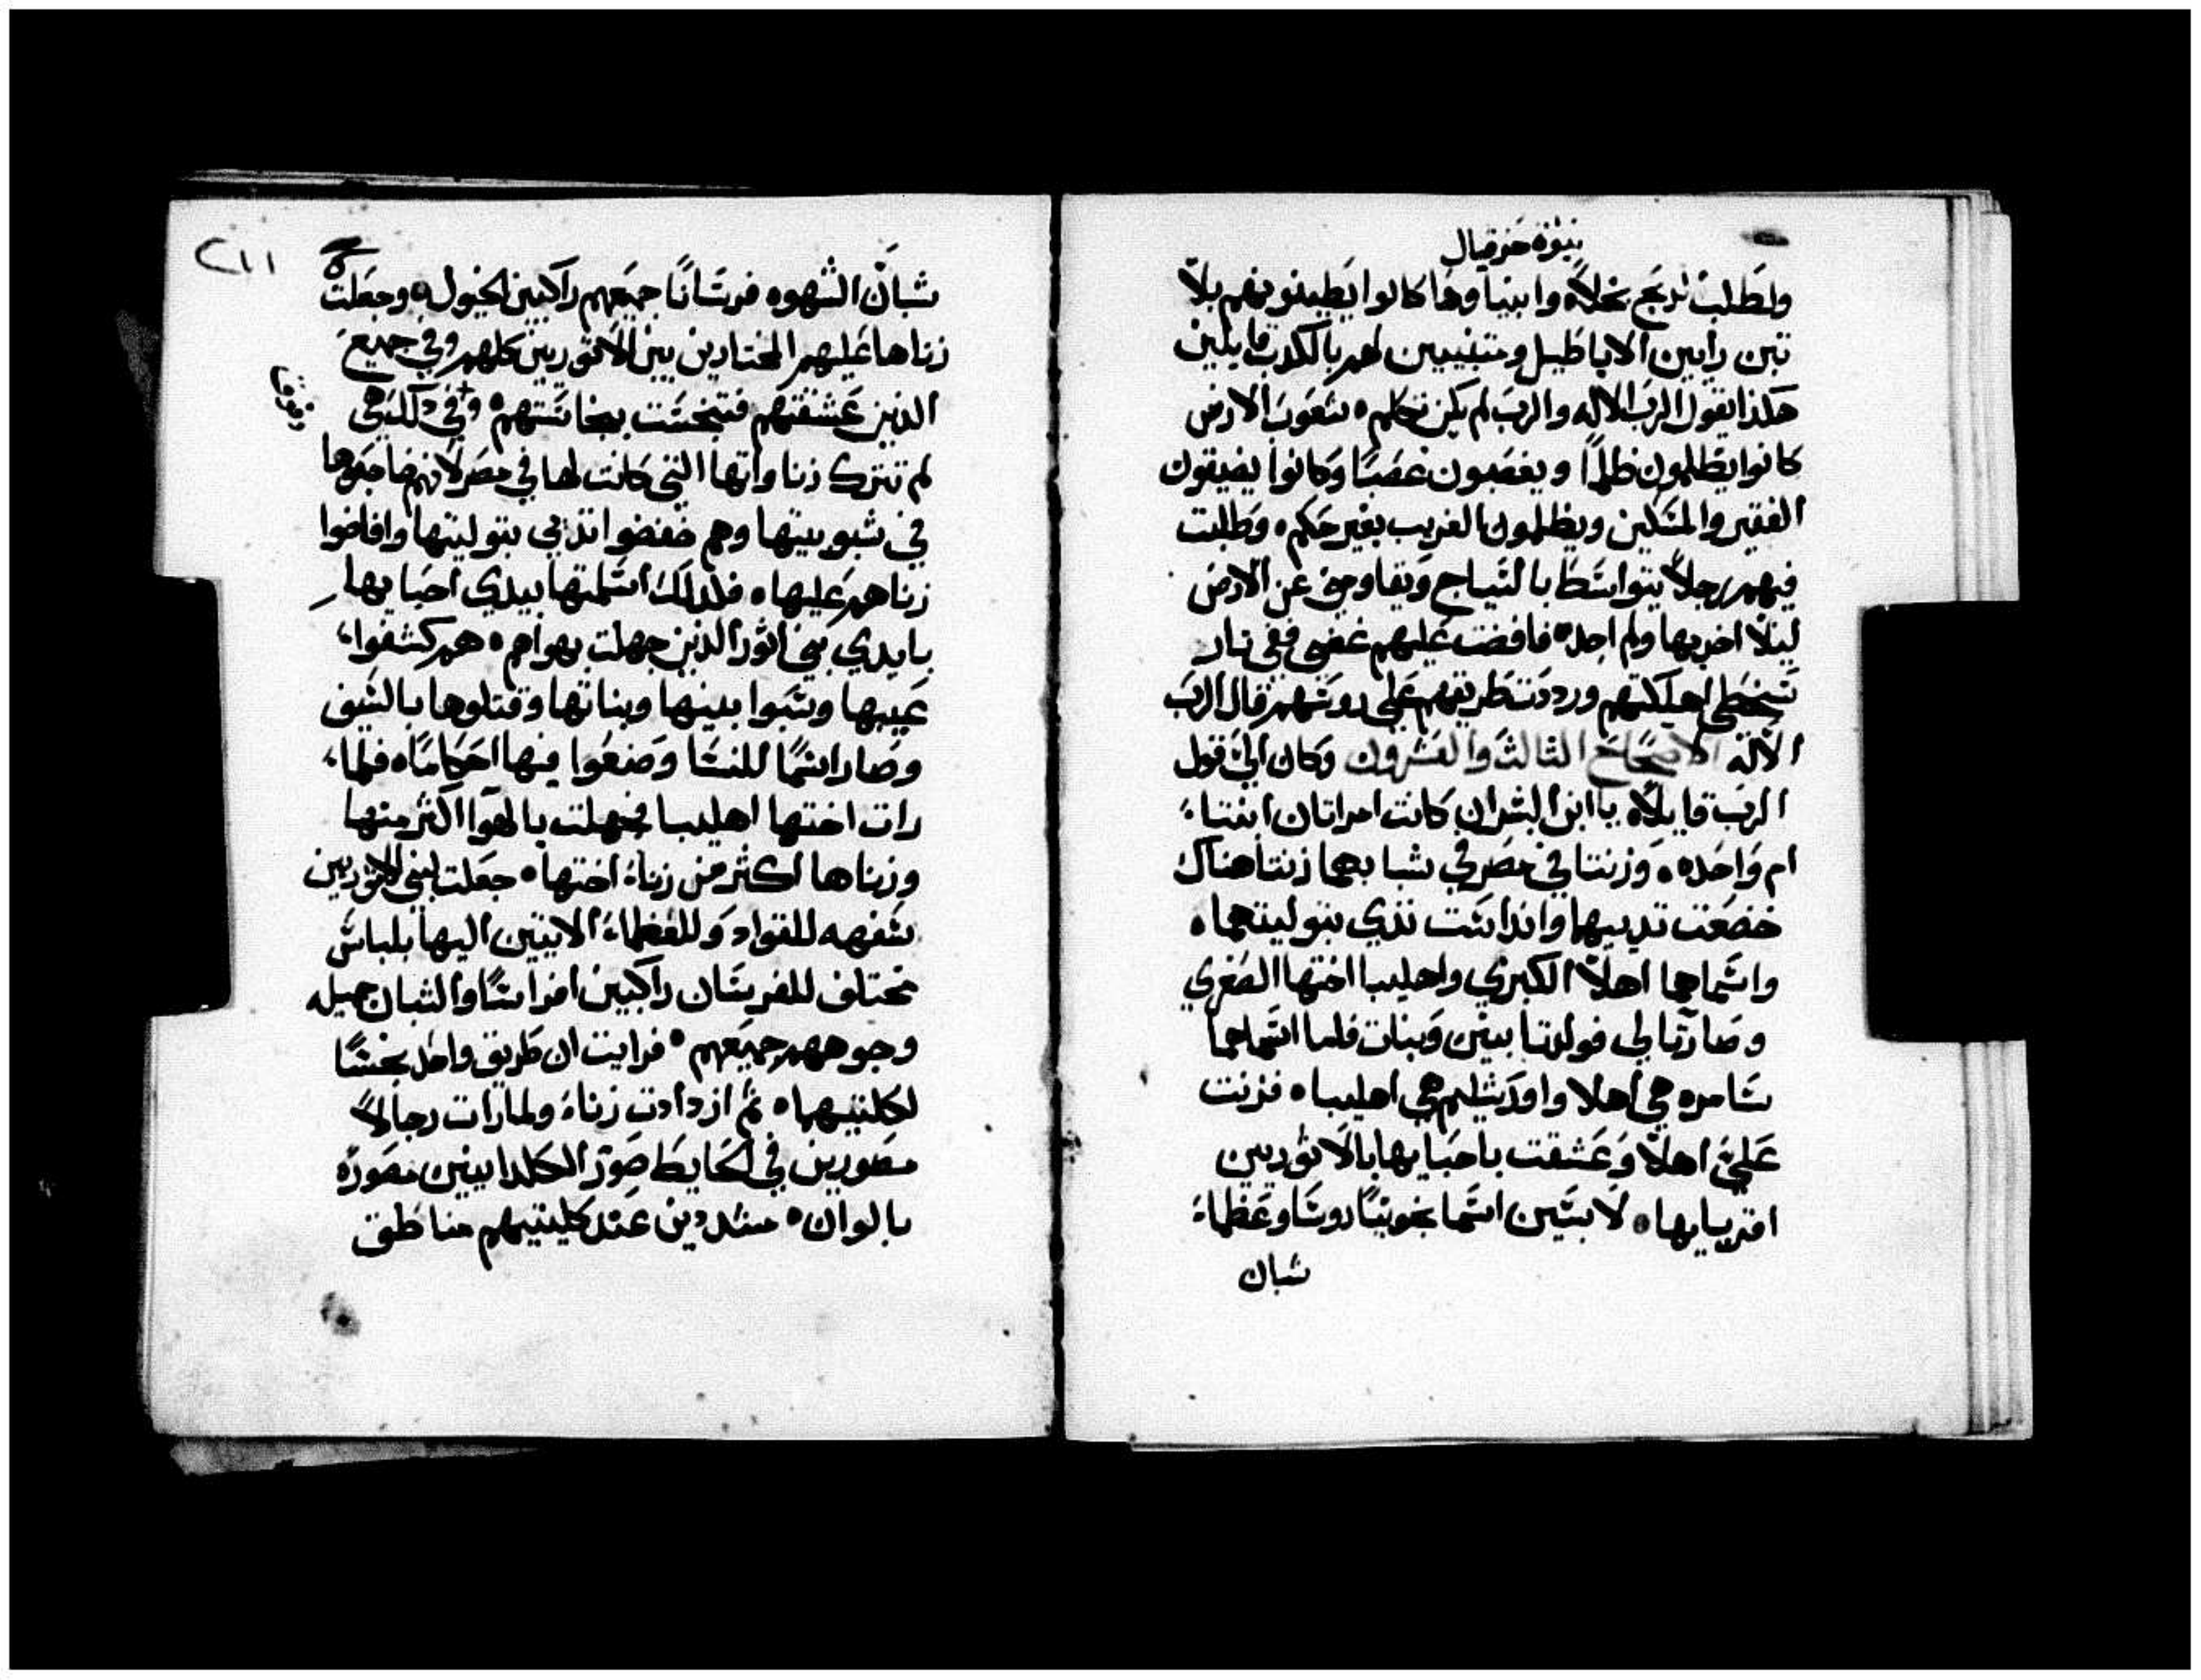 نبوة حزقيال
ولطلب لربح بخلاً وانبياوها كانوا يطينونهم بلا
تبن رايين الاباطيل ومتنبيين لهم بالكدب قايلين
هكذا يقول الرب الاله والرب لم يكن تكلم ٥ شعوب الارض
كانوا يظلمون ظلماً ويغصبون غصباً وكانوا يضيقون
الفقير والمسكين ويظلمون الغريب بغير حكم ٥ وطلبت
فيهم رجلاً يتواسط بالسياج ويقاومني عن الارض
ليلا اخربها ولم اجد ٥ فافضت عليهم غضبي ففي نار
سخطي اهلكتهم ورددت طريقهم على روسهم قال الرب
الاله الاصحاح الثالث والعشرون وكان اليّ قول
الرب قايلاً ٥ يا ابن البشر ان كانت امراتان ابنتا
ام واحده ٥ وزنتا في مصر في شبابهما زنتا هناك
خضعت تدييهما واندانست تدي بتوليتهما ٥
واسماهما اهلا الكبري واهليبا اختها الصغري
وصارتا لي فولدتا بنين وبنات فاما اسماهما
سامره هي اهلا واورشليم هي اهليبا ٥ فزنت
عليّ اهلا وعشقت باحبايها بالاثوريين
اقربايها ٥ لابسين اسمانجونيا روسا وعظماء
شبان
٢١١
شبان الشهوه فرسانا جميعهم راكبين الخيول ٥ وجعلت
زناها عليهم المختارين بين الاثوريين كلهم وفي جميع
الذين عشقتهم فتنجست بنجاستهم ٥ وفي ذلك هي
لم تترك زناواتها التي كانت لها في مصر لانهم ضاجعوها
في شبوبيتها وهم خضضوا تدي بتوليتها وافاضوا
زناهم عليها ٥ فلذلك اسلمتها بيدي احبايها
بايدي بني اثور الذين جهلت بهواهم ٥ هم كشفوا
عيبها وسبوا بنيها وبناتها وقتلوها بالسيف
وصار اسما للنسا وصنعوا فيها احكاما ٥ فلما
رات اختها اهليبا فجهلت بالهوا اكثر منها
وزناها اكثر من زناء اختها ٥ جعلت لبني الاثوريين
سفهه للقواد وللعظماء الاتيين اليها بلباس
مختلف للفرسان راكبين افراسا والشبان جميله
وجوههم جميعهم ٥ فرايت ان طريق واحد نجسا
لكلتيهما ٥ ثم ازدادت زناء ولما رات رجالاً
مصورين في الحايط صور الكلدانيين مصوره
بالوان ٥ مشددين عند كليتيهم مناطق